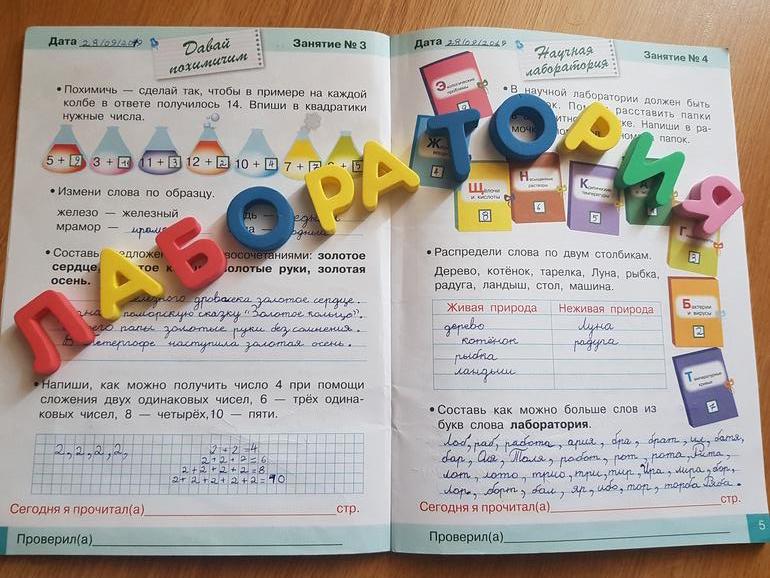 Дата 28/09/2019
Давай
похимичим
Занятие № 3
• Похимичь — сделай так, чтобы в примере на каждой
колбе в ответе получилось 14. Впиши в квадратики
нужные числа.
5 + 9 3 + 11 + 3 12 + 2 10 + 4 7 + 7
• Измени слова по образцу.
железо — железный
мрамор —
• Составь
сердце, золотые руки, золотая
осень.
золотое сердце.
сказку "Золотое кольцо".
папы золотые руки без сомнения.
наступила золотая осень.
• Напиши, как можно получить число 4 при помощи
сложения двух одинаковых чисел, 6 — трёх одина-
ковых чисел, 8 — четырёх,10 — пяти.
2, 2, 2, 2, 2+2=4
2+2+2=6
2+2+2+2=8
2+2+2+2+2=10
Сегодня я прочитал(а) стр.
Проверил(а)
ЛАБОРАТОРИЯ
Дата 28/09/2019
Научная
лаборатория
Занятие № 4
• В научной лаборатории должен быть
расставить папки
Напиши в ра-
папок.
Экологические
проблемы
9
Щёлочи
и кислоты
8
Насыщенные
растворы
6
Критические
температуры
5
Бактерии
и вирусы
2
Температурные
кривые
7
• Распредели слова по двум столбикам.
Дерево, котёнок, тарелка, Луна, рыбка,
радуга, ландыш, стол, машина.
Живая природа Неживая природа
дерево Луна
котёнок радуга
рыбка
ландыш
• Составь как можно больше слов из
букв слова лаборатория.
Лоб, раб, работа, ария, бра, брат, батя,
бар, Оля, Толя, работ, рот, рота, Рита,
лот, лото, трио, три, тир, Ира, лира, бор,
лор, борт, бал, яр, ибо, тор,
Сегодня я прочитал(а) стр.
Проверил(а)
5